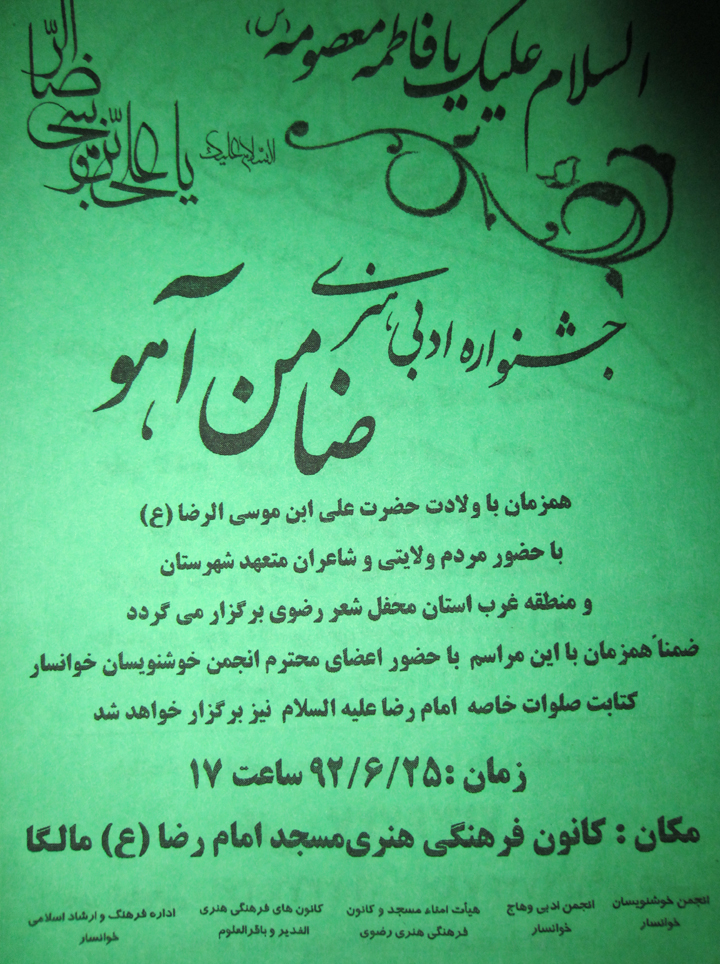 السلام علیک یا فاطمه معصومه (س)
السلام علیک
یا علی بن موسی الرضا
جشنواره ادبی هنری
ضامن آهو
همزمان با ولادت حضرت علی ابن موسی الرضا (ع)
با حضور مردم ولایتی و شاعران متعهد شهرستان
و منطقه غرب استان محفل شعر رضوی برگزار می گردد
ضمناً همزمان با این مراسم با حضور اعضای محترم انجمن خوشنویسان خوانسار
کتابت صلوات خاصه امام رضا علیه السلام نیز برگزار خواهد شد
زمان :۹۲/۶/۲۵ ساعت ۱۷
مکان : کانون فرهنگی هنری مسجد امام رضا (ع) مالگا
انجمن خوشنویسان
خوانسار
انجمن ادبی وهاج
خوانسار
هیأت امناء مسجد و کانون
فرهنگی هنری رضوی
کانون های فرهنگی هنری
الغدیر و باقرالعلوم
اداره فرهنگ و ارشاد اسلامی
خوانسار